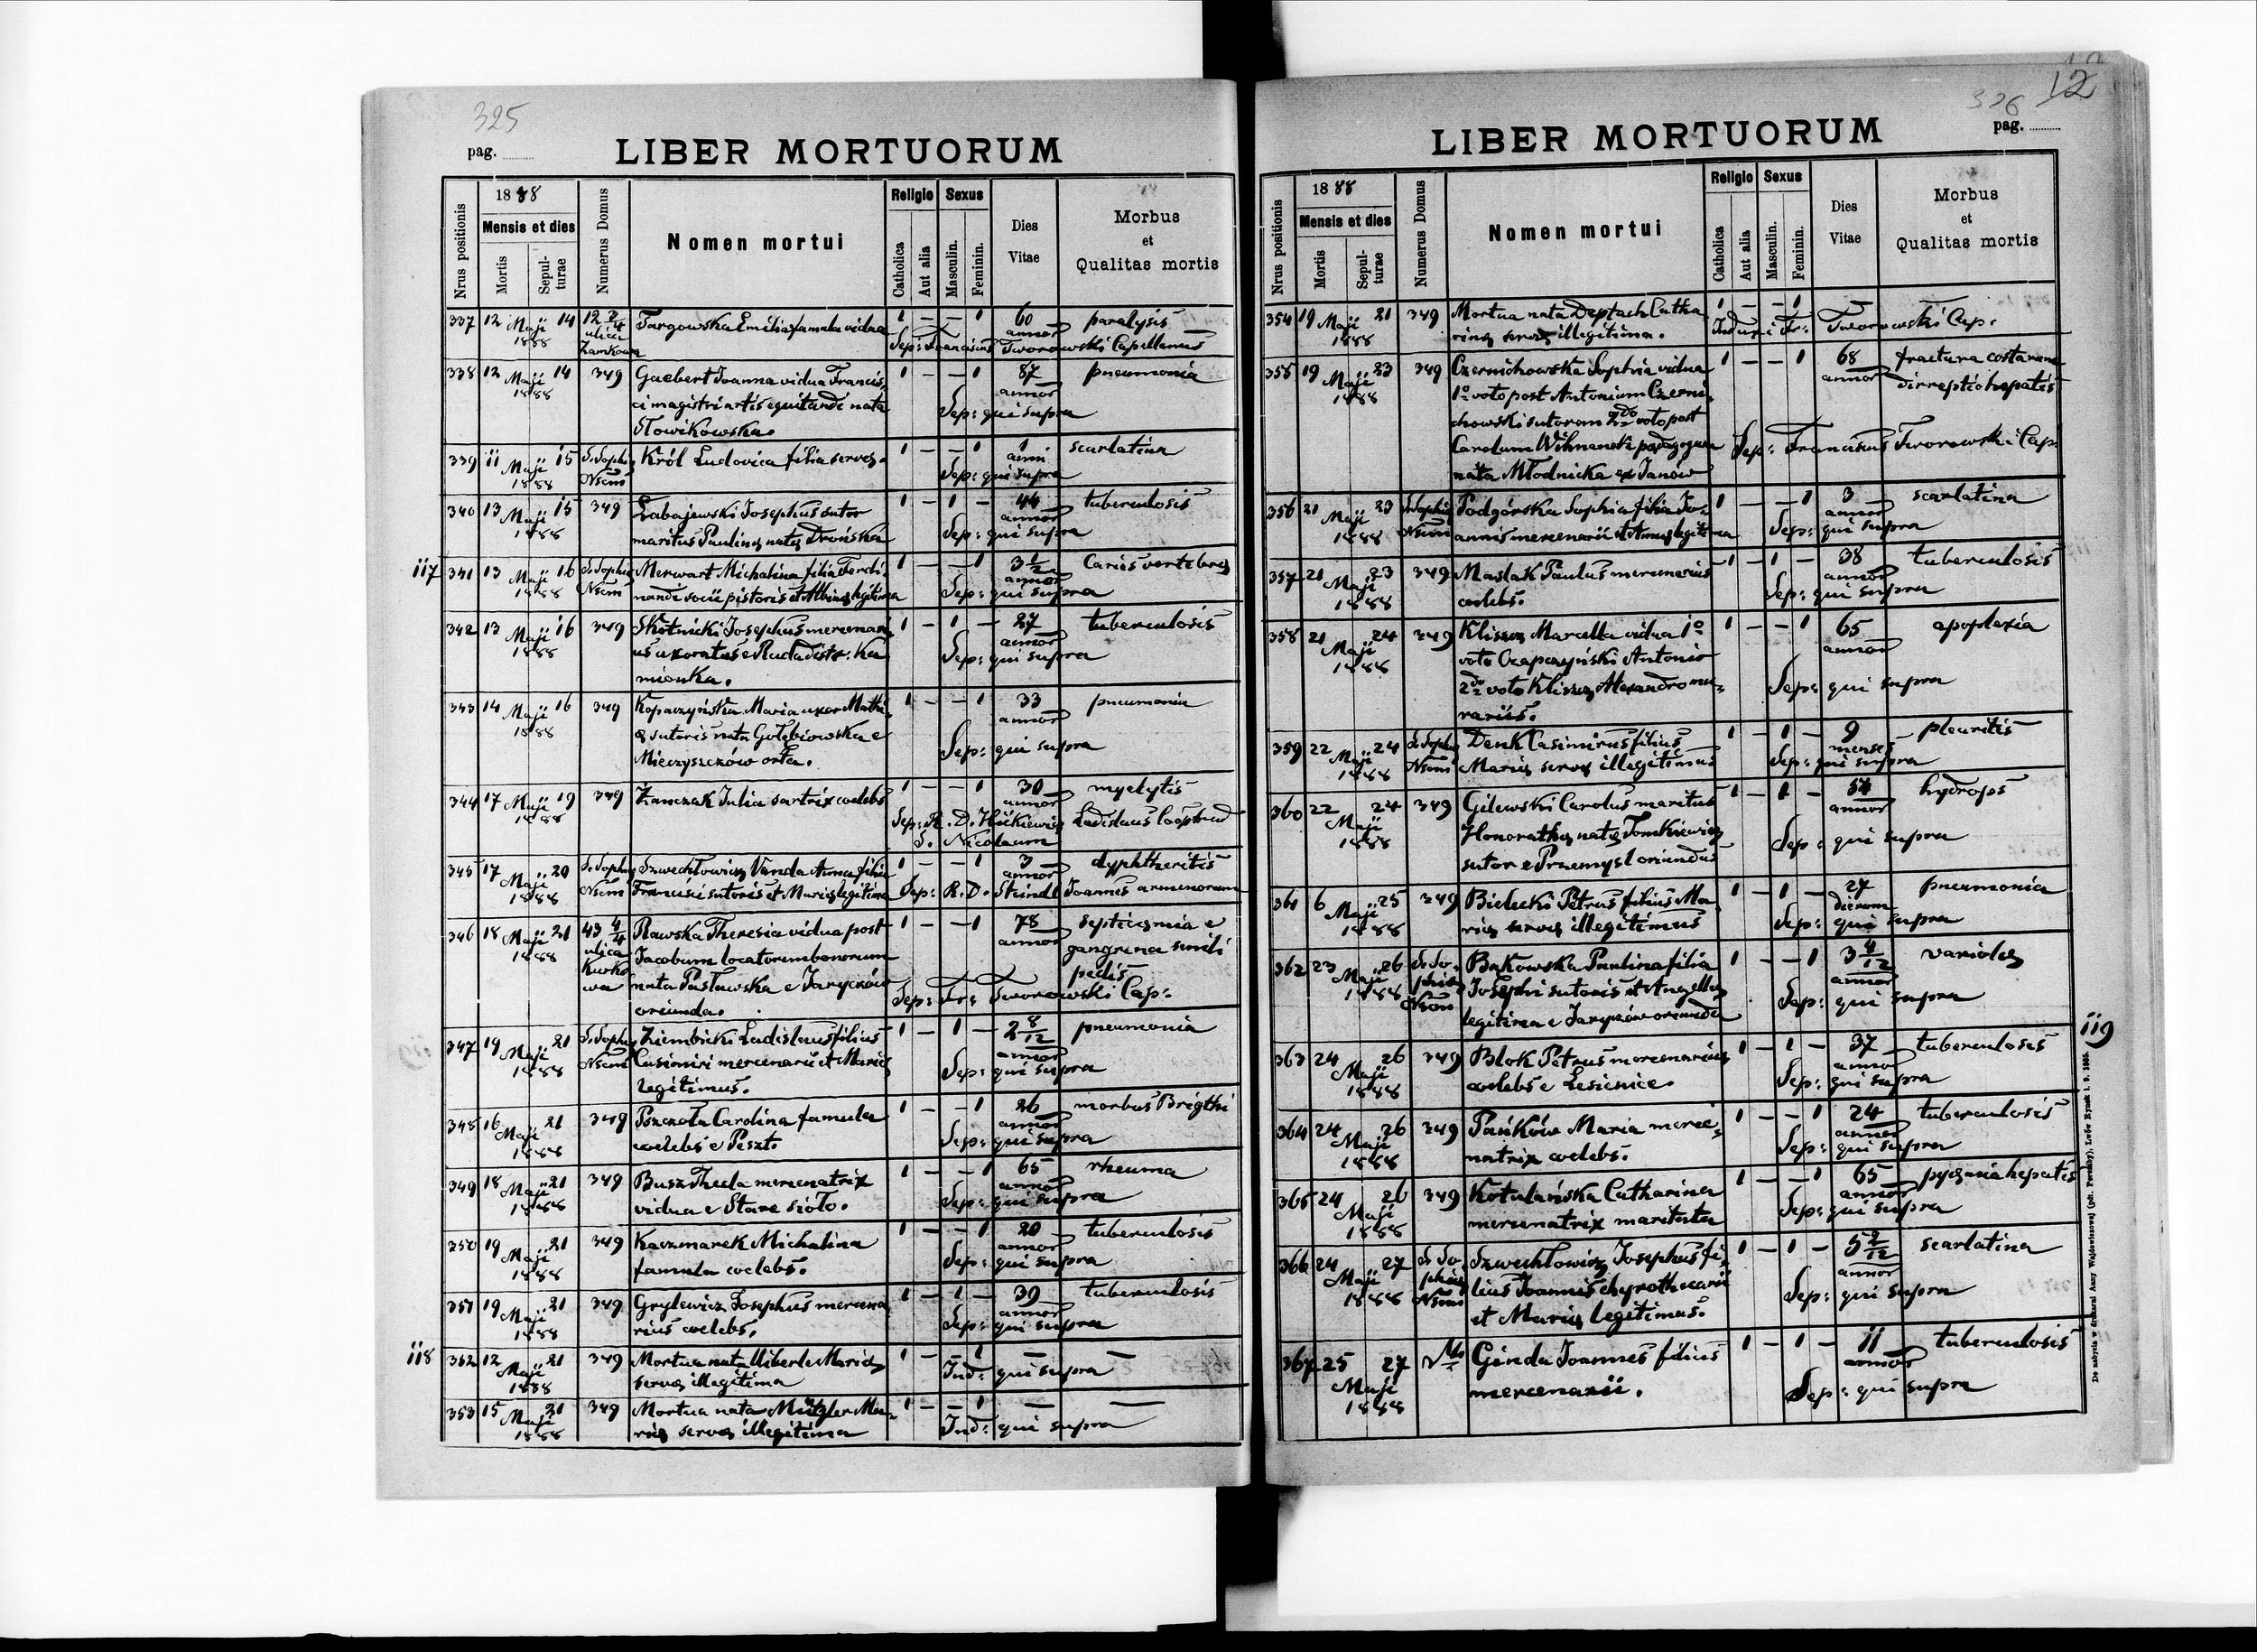 325
pag.
LIBER MORTUORUM
Nrus positionis
1888
Mensis et dies
Mortis
Sepulturae
Numerus Domus
Nomen mortui
Religio
Catholica
Aut alia
Sexus
Masculin.
Feminin.
Dies
Vitae
Morbus
et
Qualitas mortis
337 12 Maji 14 12 2/4 Targowska Emilia famula vidua 1 – – 1 60 paralysis
1888 ulica annor
Zamkowa Sep: Franciscus Tworowski Capellanus
338 12 Maji 14 349 Gaebert Joanna vidua Francis- 1 – – 1 87 pneumonia
1888 ci magistri artis equitandi nata annor
Słowikowska. Sep: qui supra
339 11 Maji 15 S. Sophia Król Ludovica filia servae. 1 – – 1 1 scarlatina
1888 Nsoni anni
Sep: qui supra
340 13 Maji 15 349 Łabajewski Josephus sutor 1 – 1 – 44 tuberculosis
1888 maritus Paulinae natae Drońska annor
Sep: qui supra
117 341 13 Maji 16 S. Sophia Merwart Michalina filia Ferdi- 1 – – 1 3 1/2 Caries vertebrae
1888 Nsoni nandi socii pistoris et Albinae legitima annor
Sep: qui supra
342 13 Maji 16 349 Skotnicki Josephus mercenari- 1 – 1 – 27 tuberculosis
1888 us uxoratus e Ruda distr. Ka annor
mionka. Sep: qui supra
343 14 Maji 16 349 Kopaczyńska Maria uxor Mathi- 1 – – 1 33 pneumonia
1888 ae sutoris nata Gołębiowska e annor
Mieczyszczów orta. Sep: qui supra
344 17 Maji 19 349 Żamczak Julia sartrix coelebs 1 – – 1 30 myelytis
1888 annor
Sep: R. D. Hickiewicz Ladislaus Coop: ad
S. Nicolaum
345 17 Maji 20 S. Sophia Szwechłowicz Vanda Anna filia 1 – – 1 3 dyphtheritis
1888 Nsoni Francisci sutoris et Mariae legitima annor
Sep: R. D. Steindl Joannes armenorum
346 18 Maji 21 43 4/4 Rawska Theresia vidua post 1 – – 1 78 septicaemia e
1888 ulica Jacobum locatorem bonorum annor gangrena senili
Kurko nata Pasławska e Jaryczów pedis
wa oriunda. Sep: Fr: Tworowski Cap:
347 19 Maji 21 S. Sophia Ziembicki Ladislaus filius 1 – 1 – 2 8/12 pneumonia
1888 Nsoni Casimiri mercenarii et Mariae annor
legitimus. Sep: qui supra
348 16 Maji 21 349 Pszczoła Carolina famula 1 – – 1 26 morbus Brigthi
1888 coelebs e Peszt. annor
Sep: qui supra
349 18 Maji 21 349 Busz Thecla mercenatrix 1 – – 1 65 rheuma
1888 vidua e Stare sioło. annor
Sep: qui supra
350 19 Maji 21 349 Kaczmarek Michalina 1 – – 1 20 tuberculosis
1888 famula coelebs. annor
Sep: qui supra
351 19 Maji 21 349 Grylewicz Josephus mercena 1 – 1 – 39 tuberculosis
1888 rius coelebs. annor
Sep: qui supra
118 352 12 Maji 21 349 Mortua nata Uiberle Mariae 1 – – 1 – –
1888 servae illegitima Ind: qui supra
353 15 Maji 21 349 Mortua nata Mützler Ma- 1 – – 1 – –
1888 riae servae illegitima Ind: qui supra
326
12
pag.
LIBER MORTUORUM
Nrus positionis
1888
Mensis et dies
Mortis
Sepulturae
Numerus Domus
Nomen mortui
Religio
Catholica
Aut alia
Sexus
Masculin.
Feminin.
Dies
Vitae
Morbus
et
Qualitas mortis
354 19 Maji 21 349 Mortua nata Deptach Catha 1 – – 1 –
1888 rinae servae illegitima. Fr: Tworowski Cap.
355 19 Maji 23 349 Czernichowska Sophia vidua 1 – – 1 68 fractura costarum
1888 1o voto post Antonium Czerni- annor dirreptio hepatis
chowski sutorem 2do voto post
Carolum Wihnanek paedagogum Sep: Franciscus Tworowski Cap.
nata Młodnicka ex Janów
356 21 Maji 23 S. Sophia Podgórska Sophia filia Jo- 1 – – 1 3 scarlatina
1888 Nsoni annis mercenarii et Annae legitima annor
Sep: qui supra
357 21 Maji 23 349 Maslak Paulus mercenarius 1 – 1 – 38 tuberculosis
1888 coelebs. annor
Sep: qui supra
358 21 Maji 24 349 Klisz Marcella vidua 1o 1 – – 1 65 apoplexia
1888 voto Czapczyński Antonio annor
2do voto Klisz Alexandro mu-
rarius. Sep: qui supra
359 22 Maji 24 S. Sophia Denk Casimirus filius 1 – 1 – 9 pleuritis
1888 Nsoni Mariae servae illegitimus menses
Sep: qui supra
360 22 Maji 24 349 Gilewski Carolus maritus 1 – 1 – 54 hydrops
1888 Honorathae natae Tomkiewicz annor
sutor e Przemysl oriundus Sep: qui supra
361 6 Maji 25 349 Bielecki Petrus filius Ma- 1 – 1 – 27 pneumonia
1888 riae servae illegitimus dierum
Sep: qui supra
362 23 Maji 26 S. So- Bukowska Paulina filia 1 – – 1 3 4/12 variolae
1888 phia Josephi sutoris et Angelae annor
Nsoni legitima e Jaryczów oriunda Sep: qui supra
119
363 24 Maji 26 349 Blok Petrus mercenarius 1 – 1 – 37 tuberculosis
1888 coelebs e Lesienice. annor
Sep: qui supra
364 24 Maji 26 349 Pańków Maria merce- 1 – – 1 24 tuberculosis
1888 natrix coelebs. annor
Sep: qui supra
365 24 Maji 26 349 Kotulańska Catharina 1 – – 1 65 pyaemia hepatis
1888 mercenatrix maritata annor
Sep: qui supra
366 24 Maji 27 S. So- Szwechłowicz Josephus fi- 1 – 1 – 5 2/12 scarlatina
1888 phia lius Joannis chyrothecarii annor
Nsoni et Mariae legitimus. Sep: qui supra
367 25 Maji 27 Ginda Joannes filius 1 – 1 – 11 tuberculosis
1888 mercenarii. annor
Sep: qui supra
De nabycia w drukarni Anny Wajdowiczowej (pdt. Perenby), Lwów Rynek l. 9. 1885.